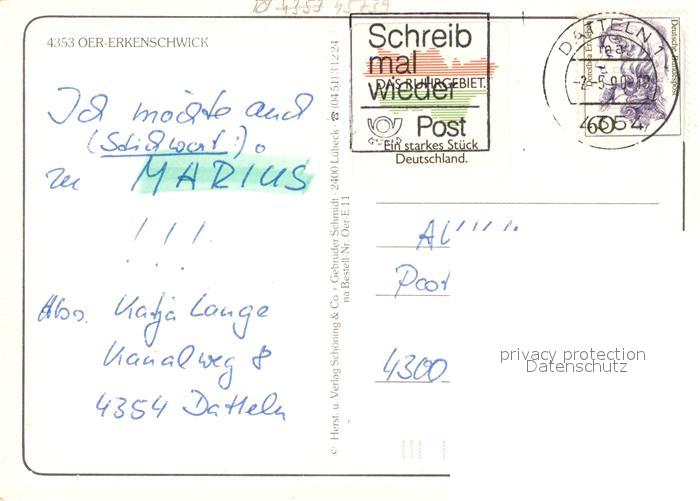 4353 OER-ERKENSCHWICK
Ich möchte auch
(Stichwort:)
zu MARIUS
! ! !
Abs. Katja Lange
Kanalweg 8
4354 Datteln
© Herst. u. Verlag Schöning & Co + Gebrüder Schmidt · 2400 Lübeck · ☎ (0451) 31 22 24
na Bestell-Nr. Oer-E 11
Schreib
mal
wieder
Post
DAS RUHRGEBIET.
Ein starkes Stück
Deutschland.
DATTELN 1
4354
Deutsche Bundespost
60
AL
Post
4300
privacy protection
Datenschutz